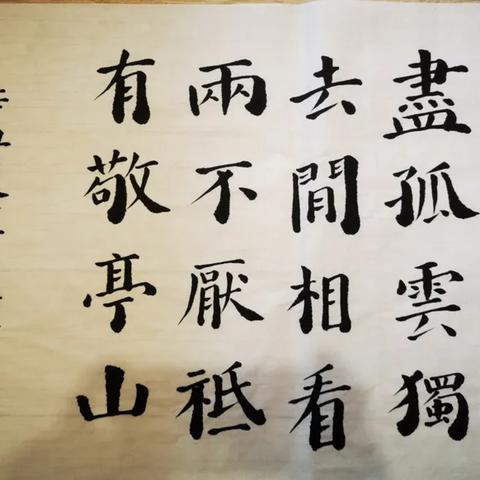 盡孤雲獨
去閒相看
兩不厭祗
有敬亭山